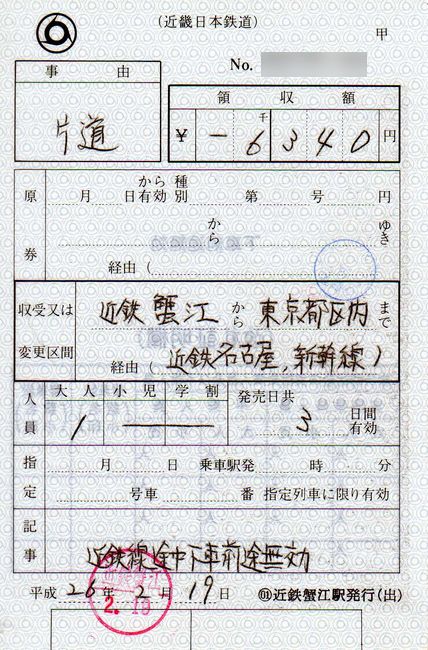 (近畿日本鉄道)
甲
No.
事由
片道
領収額
千
¥ - 6 3 4 0 円
原券
から 種
月 日有効 別 第 号 円
から ゆき
経由 (
収受又は変更区間
近鉄 蟹江 から 東京都区内 まで
経由 ( 近鉄名古屋, 新幹線 )
人員
大人 小児 学割 発売日共
1 3 日間有効
指定
月 日 乗車駅発 時 分
号車 番 指定列車に限り有効
記事
近鉄線途中下車前途無効
平成 26 年 2 月 19 日 ⓪近鉄蟹江駅発行(出)
2. 19